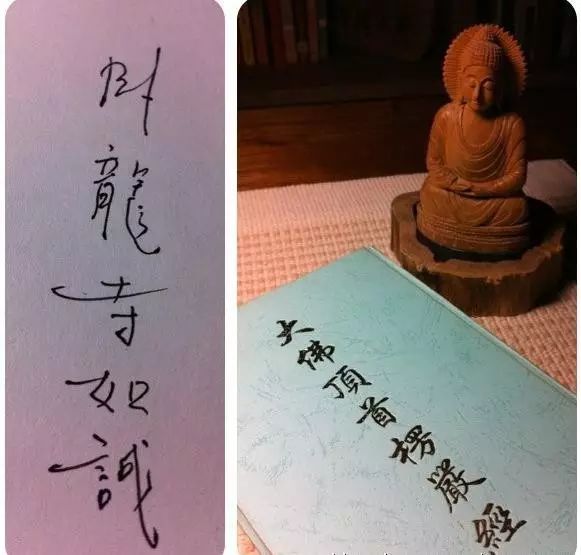 卧龍寺如誠
大佛頂首楞嚴經